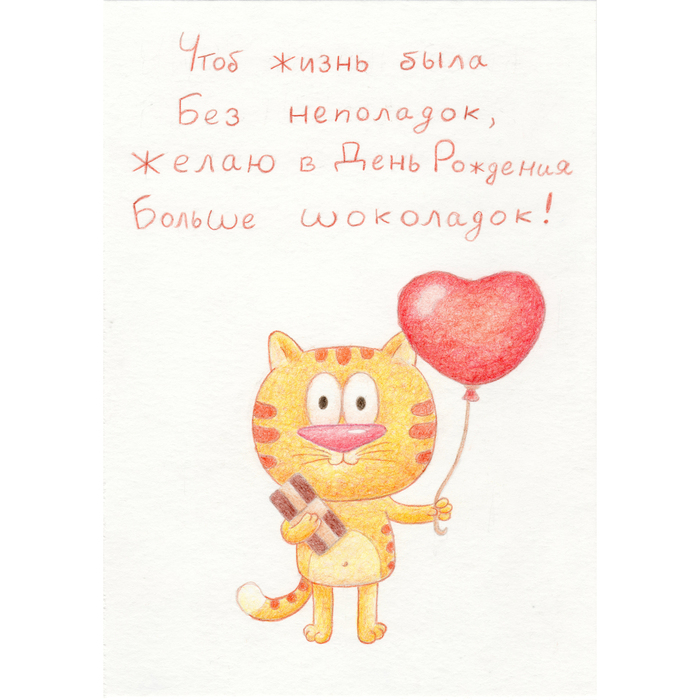 Чтоб жизнь была
Без неполадок,
желаю в День Рождения
Больше шоколадок!